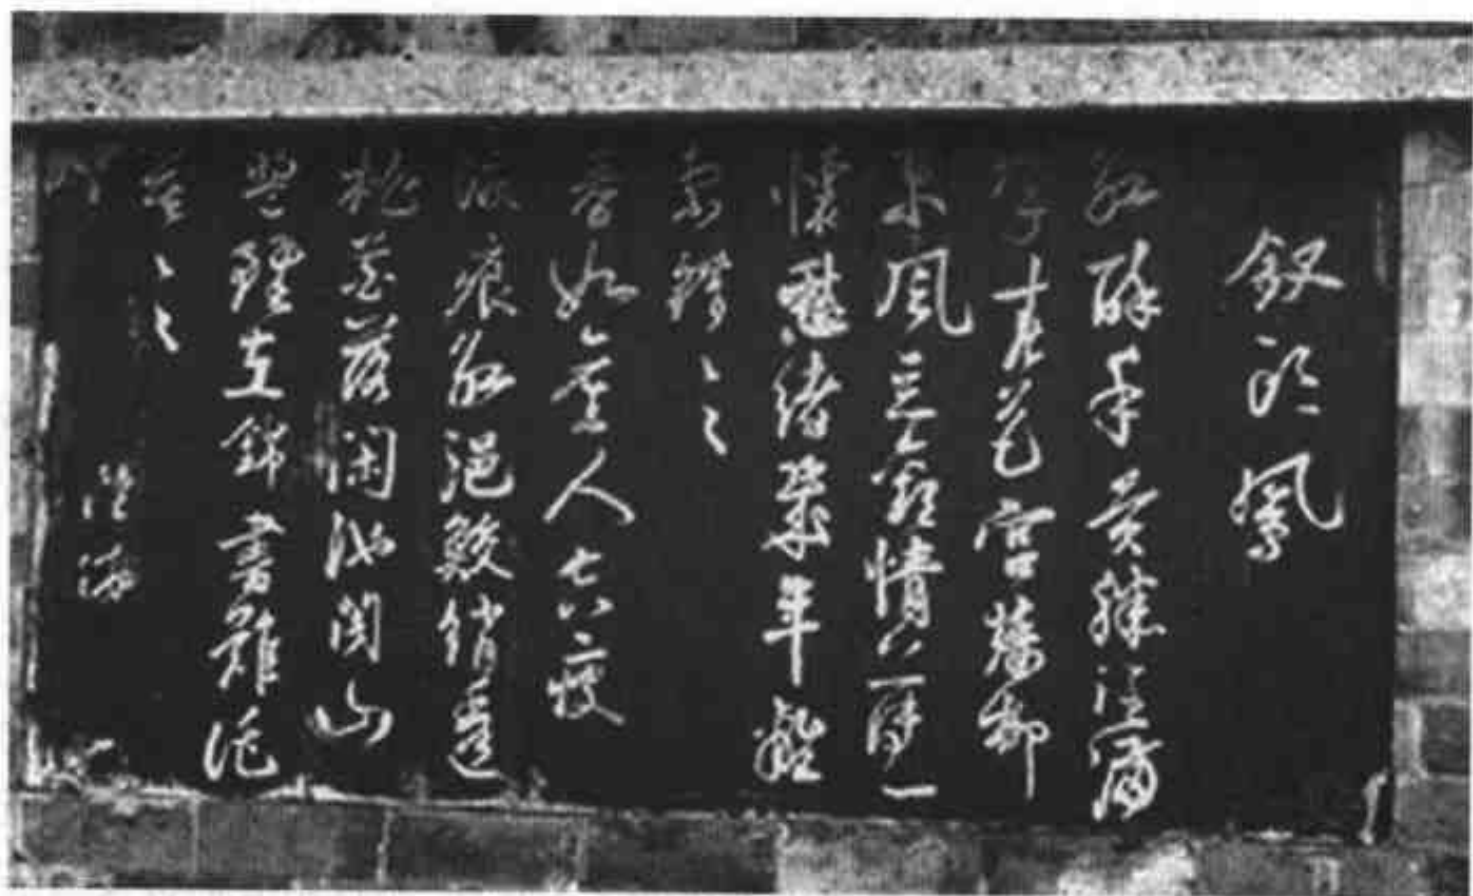 釵頭鳳
紅酥手黃縢酒滿
城春色宮牆柳
東風惡歡情薄一
懷愁緒幾年離
索錯〻〻
春如舊人空瘦
淚痕紅浥鮫綃透
桃花落閑池閣山
盟雖在錦書難託
莫〻〻
陸游